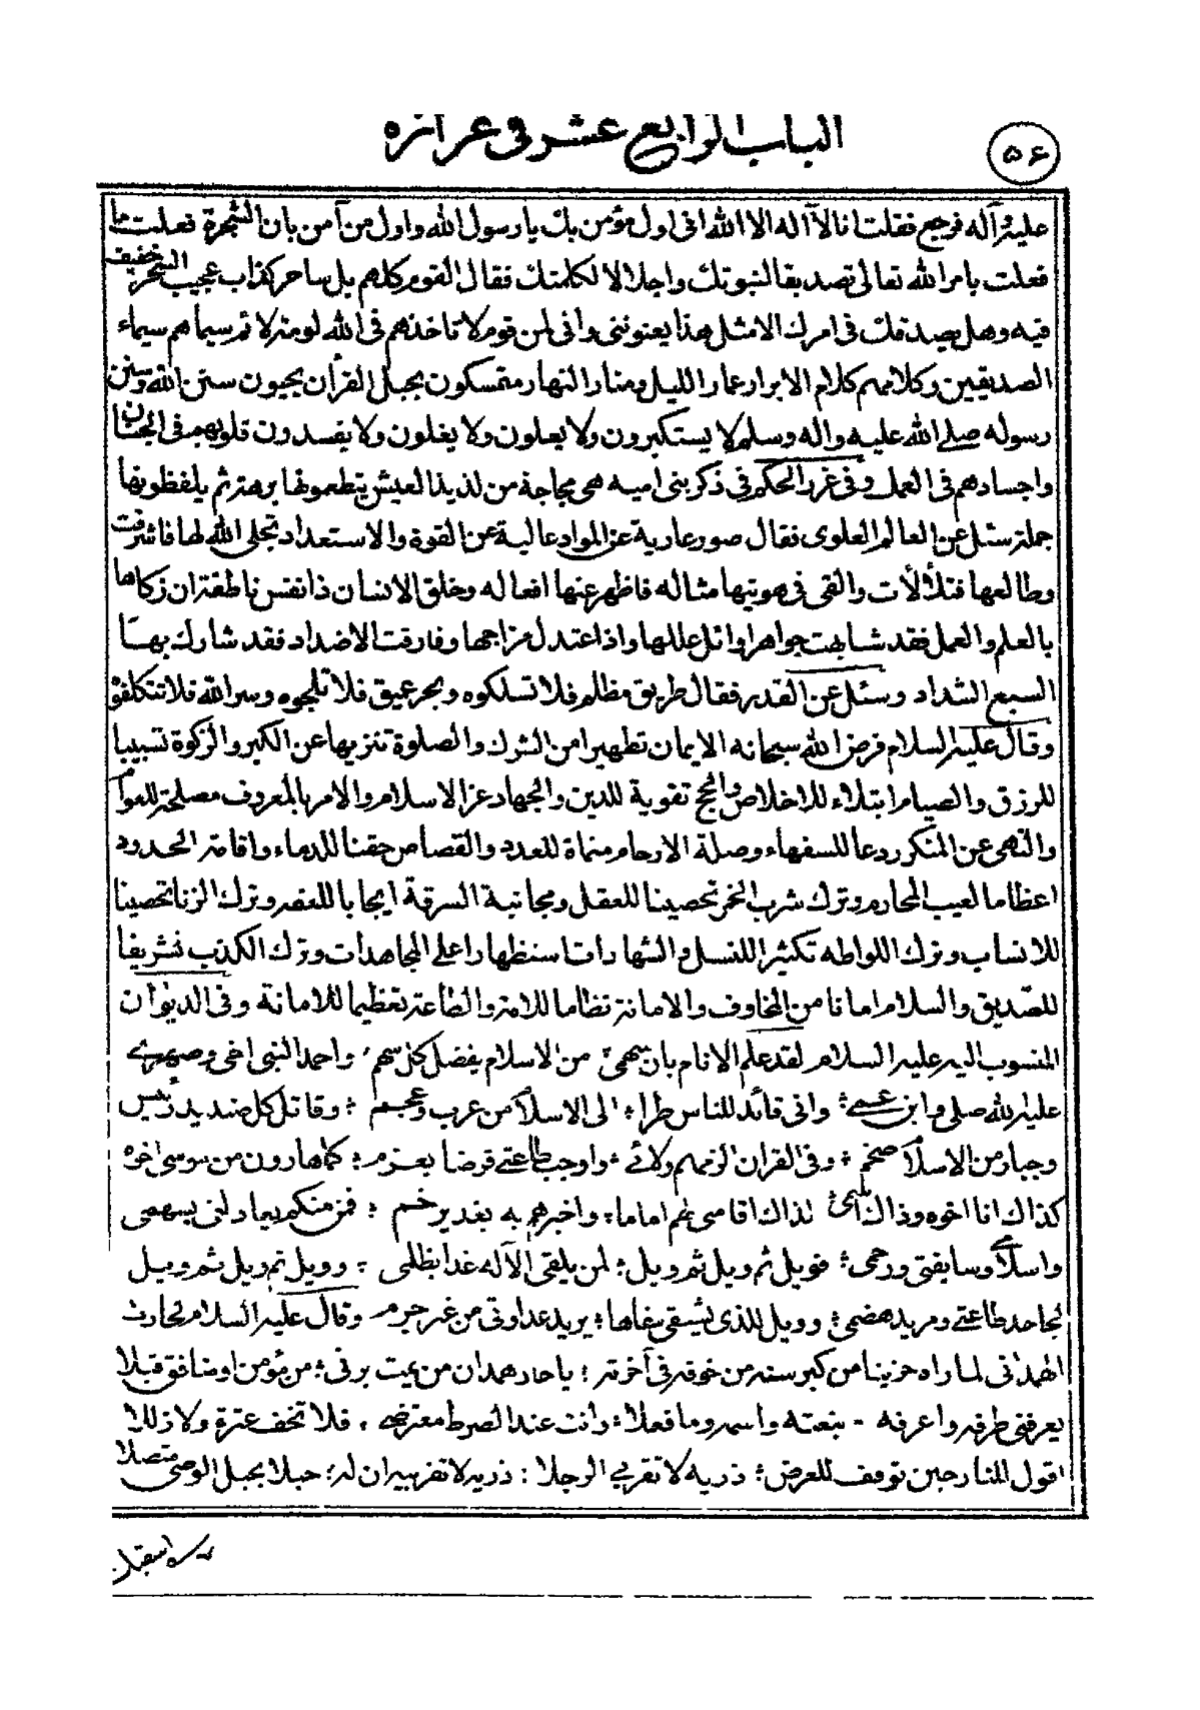 الباب الرابع عشر فی غرائزه
۵۶
علیه وآله فرجع فقلت انا لا اله الا الله انی اول مؤمن بك یا رسول الله واول من آمن بان الشجرة فعلت ما
فعلت بامر الله تعالی تصدیقا لنبوتك واجلالا لكلمتك فقال القوم كلهم بل ساحر كذاب عجیب السحر خفیف
فیه وهل یصدقك فی امرك الا مثل هذا یعنوننی وانی لمن قوم لا تاخذهم فی الله لومة لائم سیماهم سیماء
الصدیقین وكلامهم كلام الابرار عمار اللیل ومنار النهار متمسكون بحبل القرآن یحیون سنن الله وسنن
رسوله صلی الله علیه واله وسلم لا یستكبرون ولا یعلون ولا یغلون ولا یفسدون قلوبهم فی الجنان
واجسادهم فی العمل وفی غرر الحكم فی ذكر بنی امیه هی مجاجة من لذیذ العیش یتطعمونها برهة ثم یلفظونها
جملة سئل عن العالم العلوی فقال صور عاریة عن المواد عالیة عن القوة والاستعداد تجلی الله لها فاشرقت
وطالعها فتلألأت والقی فی هویتها مثاله فاظهر عنها افعاله وخلق الانسان ذا نفس ناطقة ان زكاها
بالعلم والعمل فقد شابهت جواهر اوائل عللها واذا اعتدل مزاجها وفارقت الاضداد فقد شارك بها
السبع الشداد وسئل عن القدر فقال طریق مظلم فلا تسلكوه وبحر عمیق فلا تلجوه وسر الله فلا تتكلفوه
وقال علیه السلام فرض الله سبحانه الایمان تطهیرا من الشرك والصلوة تنزیها عن الكبر والزكوة تسبیبا
للرزق والصیام ابتلاء للاخلاص والحج تقویة للدین والجهاد عز الاسلام والامر بالمعروف مصلحة للعوام
والنهی عن المنكر ردعا للسفهاء وصلة الارحام منماة للعدد والقصاص حقنا للدماء واقامة الحدود
اعظاما لعیب المحارم وترك شرب الخمر تحصینا للعقل ومجانبة السرقة ایجابا للعفه وترك الزنا تحصینا
للانساب وترك اللواطه تكثیرا للنسل والشهادات استظهارا علی المجاهدات وترك الكذب تشریفا
للصدیق والسلام امانا من المخاوف والامانة نظاما للامة والطاعة تعظیما للامانة وفی الدیوان
المنسوب الیه علیه السلام لقد علم الانام بان سهمی من الاسلام یفضل كل سهم واحمد النبی اخی وصهری
علیه الله صلی وابن عمی وانی قائد للناس طرا الی الاسلام من عرب وعجم وقاتل كل صندید رئیس
وجبار من الاسلام ضخم وفی القران الزمهم ولائی واوجب طاعتی فرضا بعزم كما هارون من موسی اخوه
كذاك انا اخوه وذاك اسمی لذاك اقامنی لهم اماما واخبرهم به بغدیر خم فمن منكم یعادلنی بسهمی
واسلامی وسابقتی ورحمی فویل ثم ویل ثم ویل لمن یلقی الآله غدا بظلمی وویل ثم ویل ثم ویل
لجاحد طاعتی ومرید هضمی وویل للذی یشقی سفاها یرید عداوتی من غیر جرم وقال علیه السلام لحارث
الهمدانی لما راه حزینا من كبر سنه من خوفه فی آخرته یا حار همدان من یمت یرنی من مؤمن او منافق قبلا
یعرفنی طرفه واعرفه بنعته واسمه وما فعلا وانت عند الصرط معترضی فلا تخف عثرة ولا زللا
اقول للنار حین توقف للعرض ذریه لا تقربی الرجلا ذریه لا تقربیه ان له حبلا بحبل الوصی متصلا